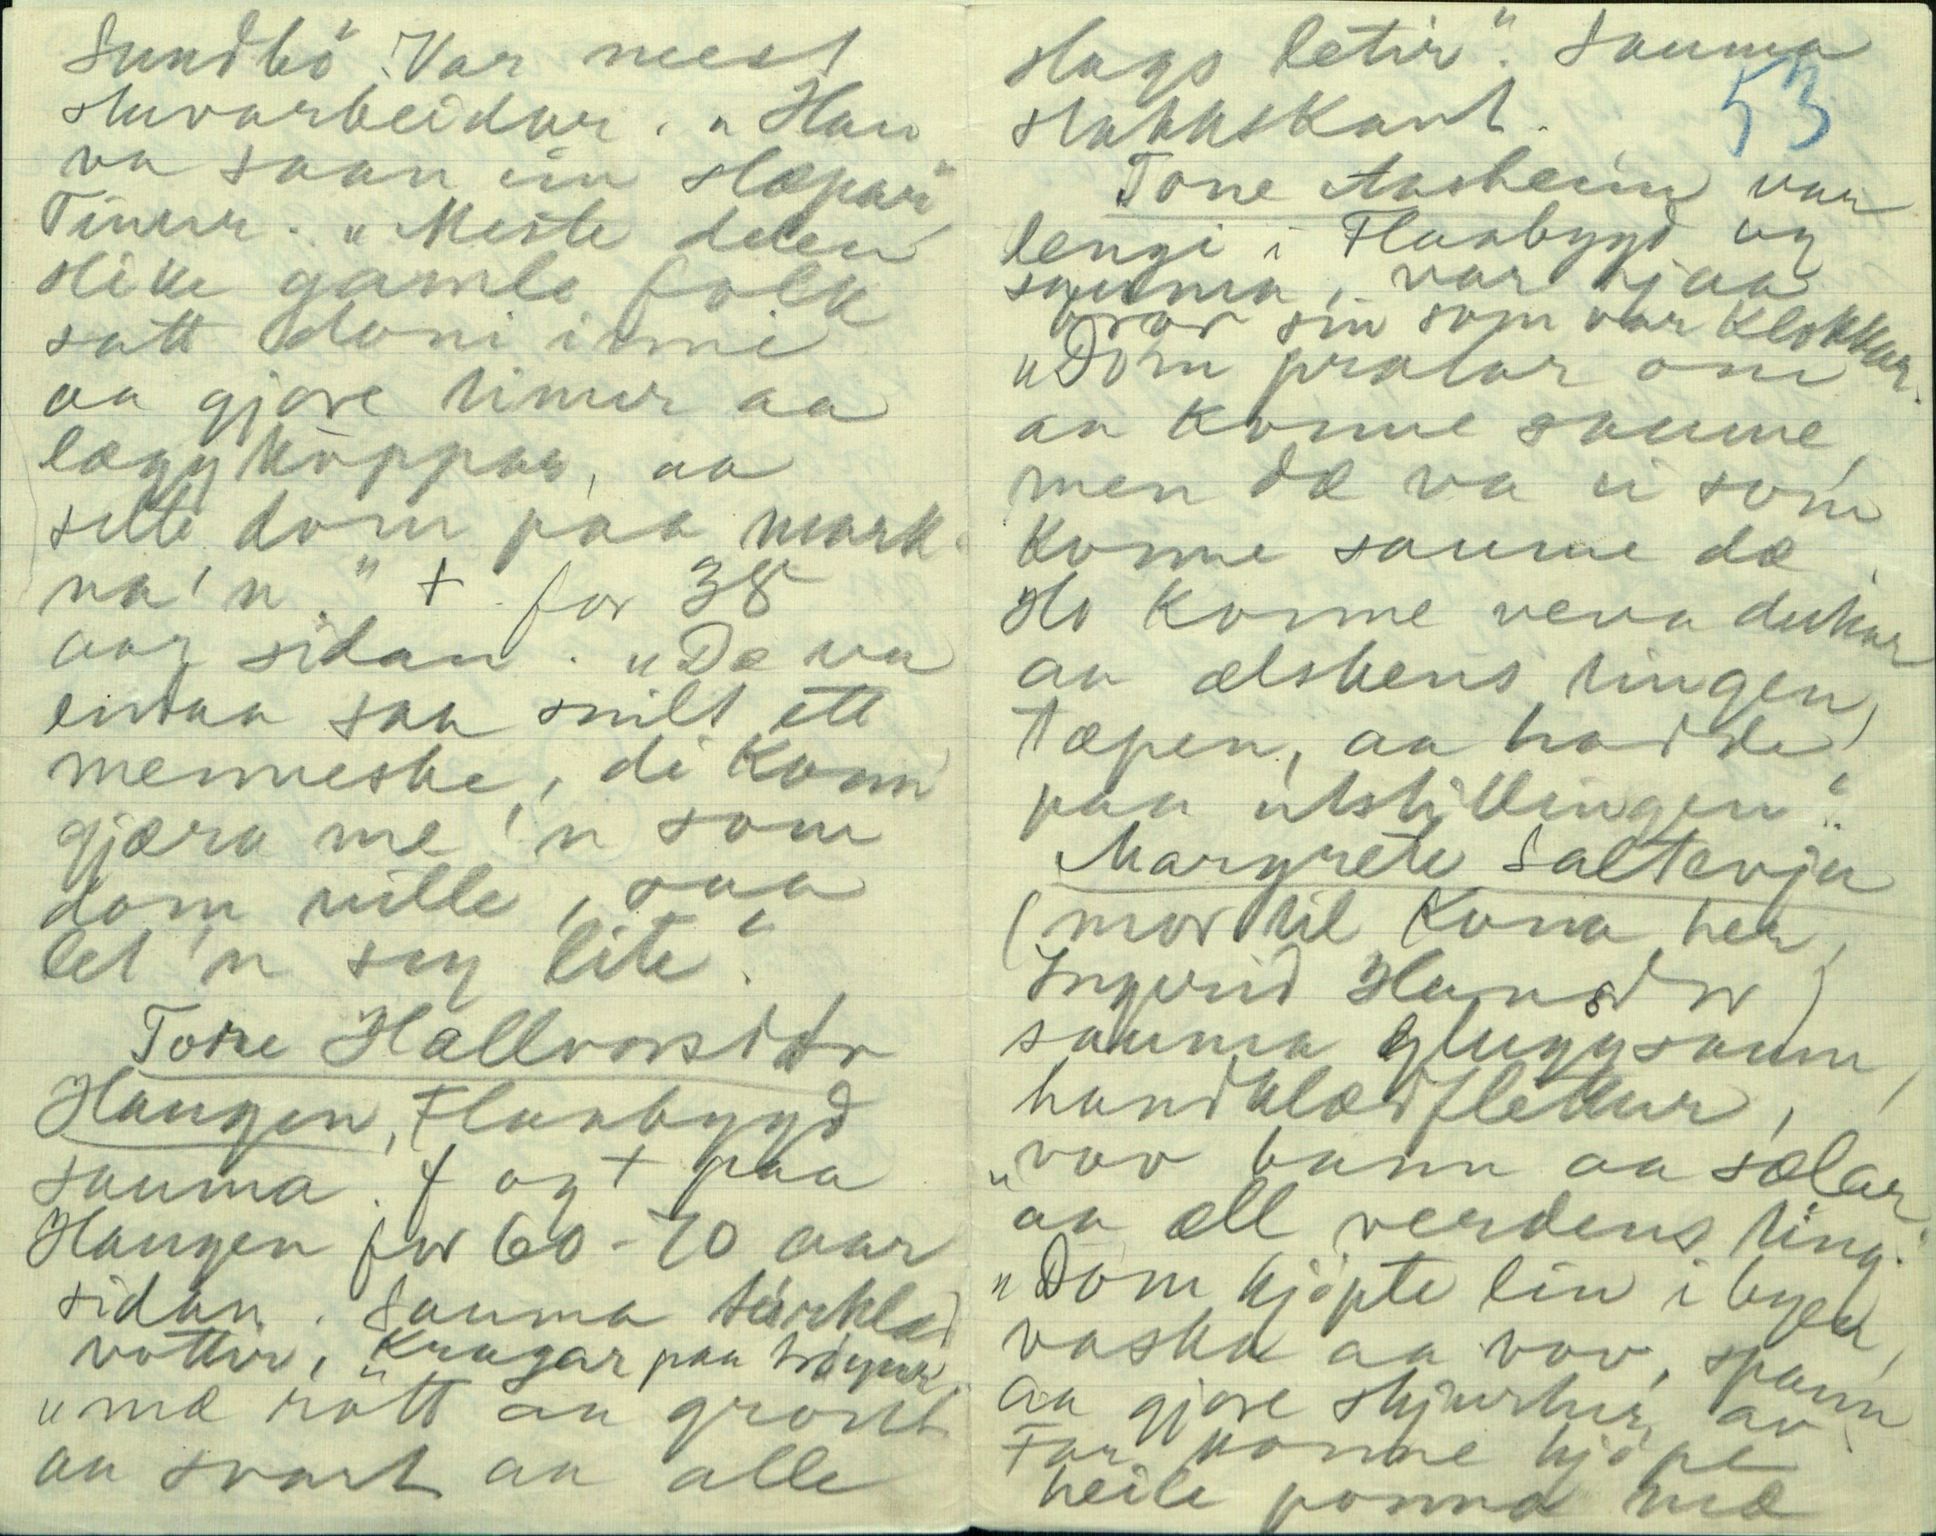 Sundbö. Var mest
snuvarbeidar. "Han
va saan ein slæpar"
Tinur. "Meste delen
slike gamle folk
satt doni inni
aa gjore tinur aa
lagg köppar, aa
selte dom paa mark-
na'n." + for 38
aar sidan. "De va
endaa saa snilt ett
menneske, di konn
gjæra me 'n som
dom ville, saa
let 'n seg lite".
Tone Hallvorsdtr
Haugen, Flaabygd
sauma. f og + paa
Haugen for 60-70 aar
sidan. Sauma türklæd
vottir, Kragar paa tröyur,
"mæ rött aa grönt
aa svart aa alle
53
slags letir". Sauma
stakkskant.
Tone Aasheim var
lengi i Flaabygd og
sauma, var hjaa
bror sin som var klokkar.
"Dom pratar om
aa konne saume,
men dæ va ei som
konne saume dæ.
Ho konne veva dukar
aa ælskens tingen,
tæpen, aa hadde
paa utstillingen".
Margrete Saltevju
(mor til Kona her,
Ingerid Hansdtr)
sauma gluggsaum,
handklædflettur,
"vov bann aa sælar
aa all verdens ting."
"Dom kjöpte lin i byen,
vaska aa vov, spann
aa gjore skjurtur av.
Far konne kjöpe
heile ponna mæ